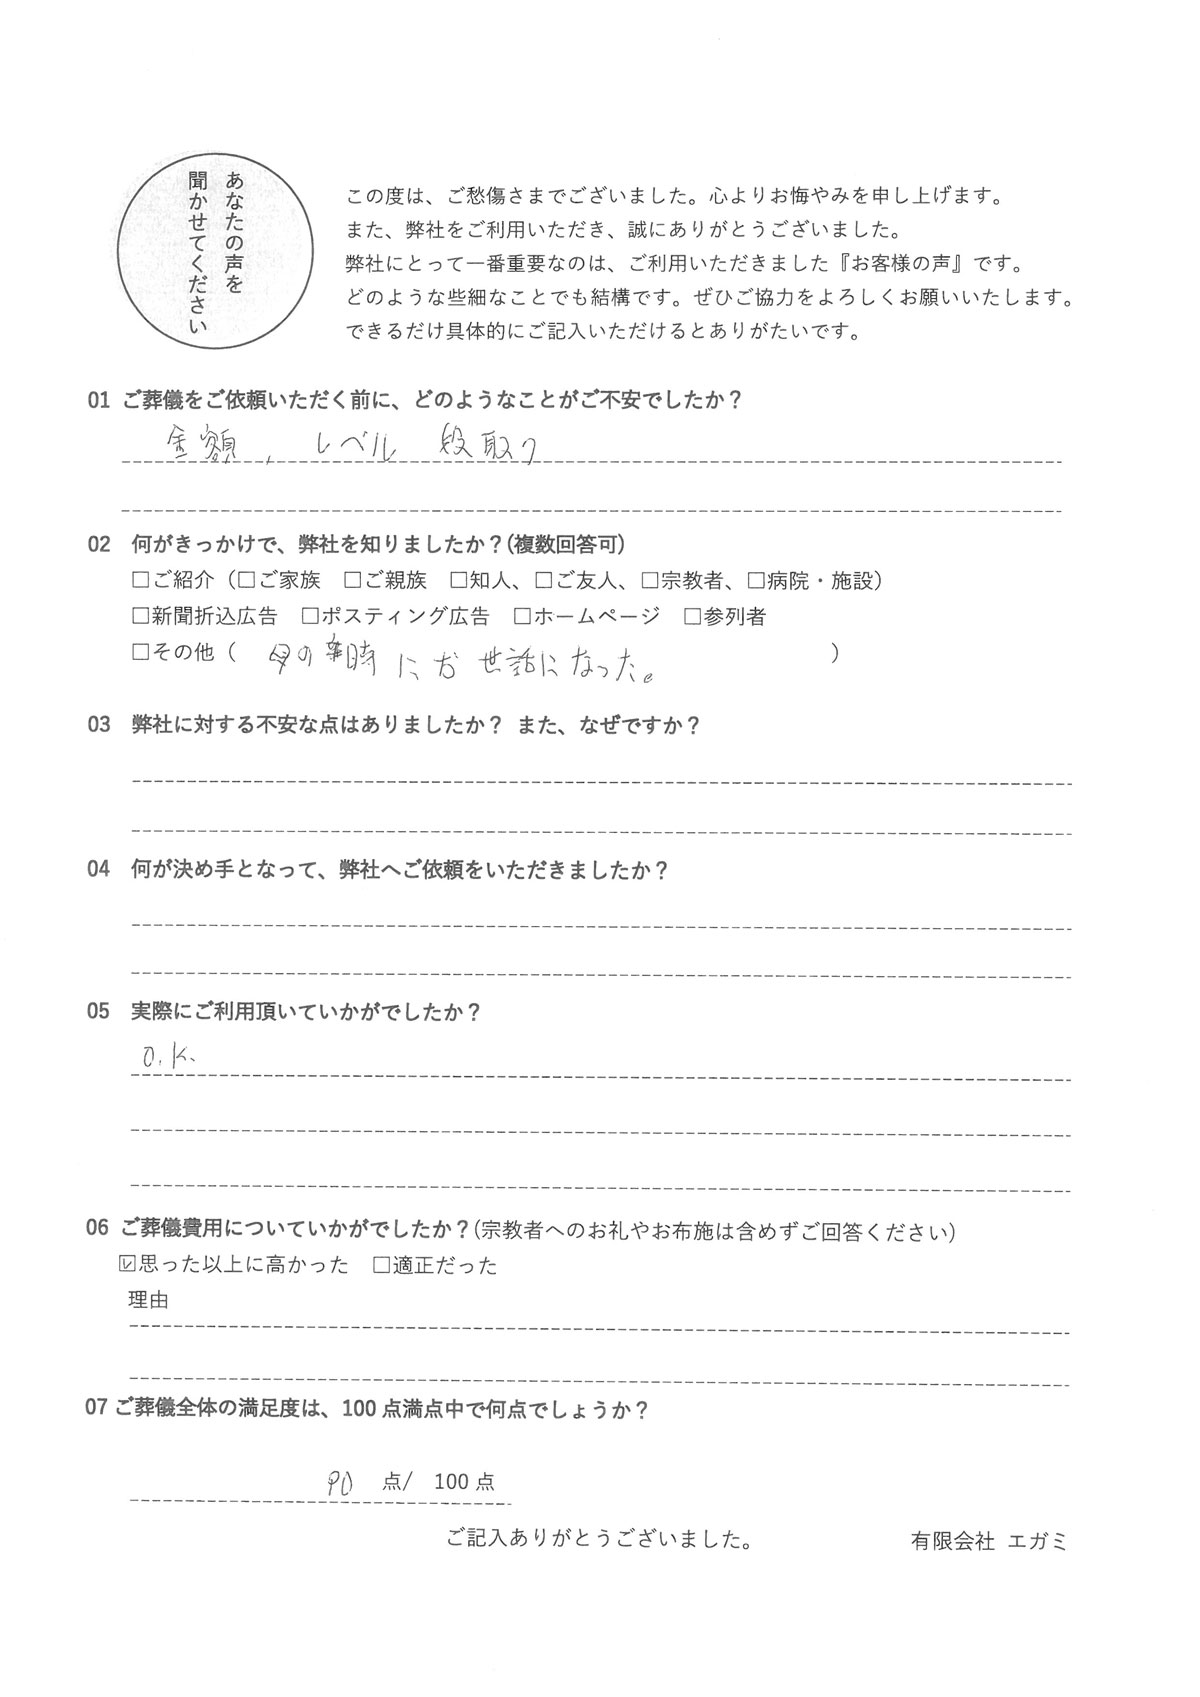 あなたの声を
聞かせてください
この度は、ご愁傷さまでございました。心よりお悔やみを申し上げます。
また、弊社をご利用いただき、誠にありがとうございました。
弊社にとって一番重要なのは、ご利用いただきました『お客様の声』です。
どのような些細なことでも結構です。ぜひご協力をよろしくお願いいたします。
できるだけ具体的にご記入いただけるとありがたいです。
01 ご葬儀をご依頼いただく前に、どのようなことがご不安でしたか？
金額, レベル 段取り
02 何がきっかけで、弊社を知りましたか？(複数回答可)
□ご紹介（□ご家族 □ご親族 □知人、□ご友人、□宗教者、□病院・施設）
□新聞折込広告 □ポスティング広告 □ホームページ □参列者
□その他（ 母の 時にお世話になった。 ）
03 弊社に対する不安な点はありましたか？ また、なぜですか？
04 何が決め手となって、弊社へご依頼をいただきましたか？
05 実際にご利用頂いていかがでしたか？
O.K.
06 ご葬儀費用についていかがでしたか？(宗教者へのお礼やお布施は含めずご回答ください)
☑思った以上に高かった □適正だった
理由
07 ご葬儀全体の満足度は、100 点満点中で何点でしょうか？
90 点/ 100 点
ご記入ありがとうございました。 有限会社 エガミ